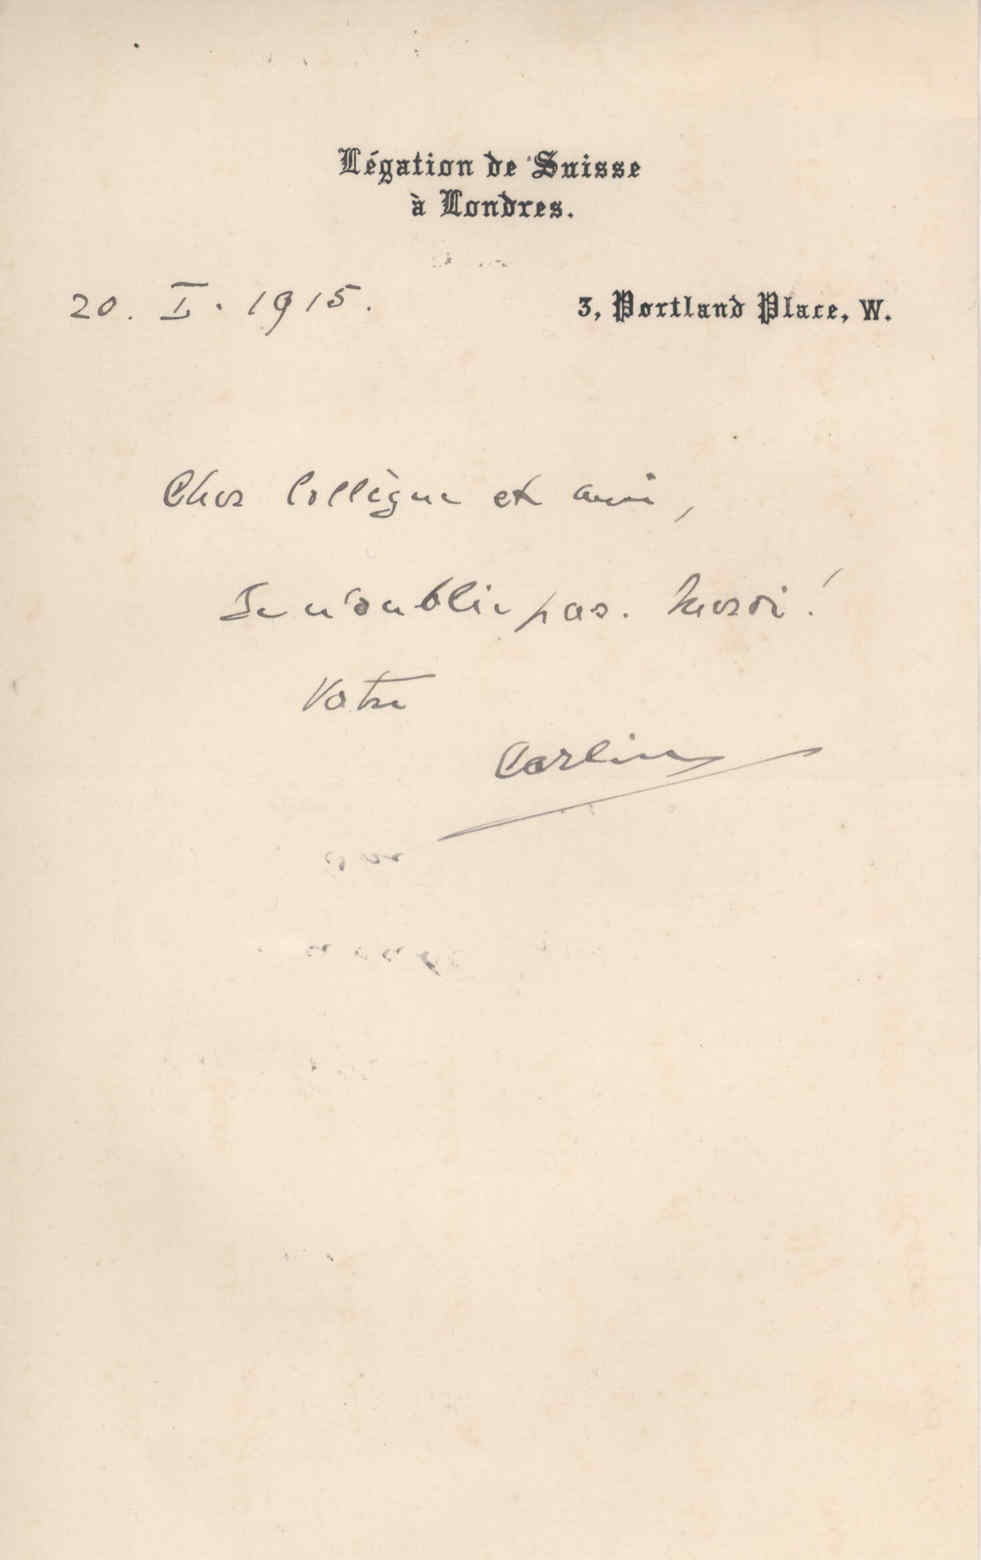 Légation de Suisse
à Londres.
20. I. 1915.
3, Portland Place, W.
Cher Collègue et ami,
Je n'oublie pas. Merci!
Votre
Carlin